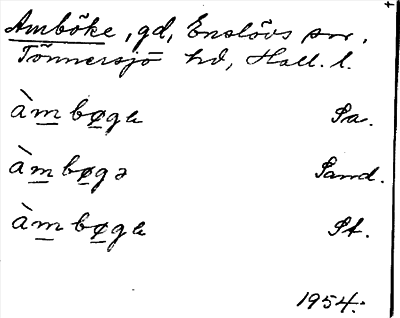 Amböke, gd, Enslövs sn.
Tönnersjö hd, Hall. l.
àmbøgə Sa.
àmbøgə Sand.
àmbøgə St.
1954.